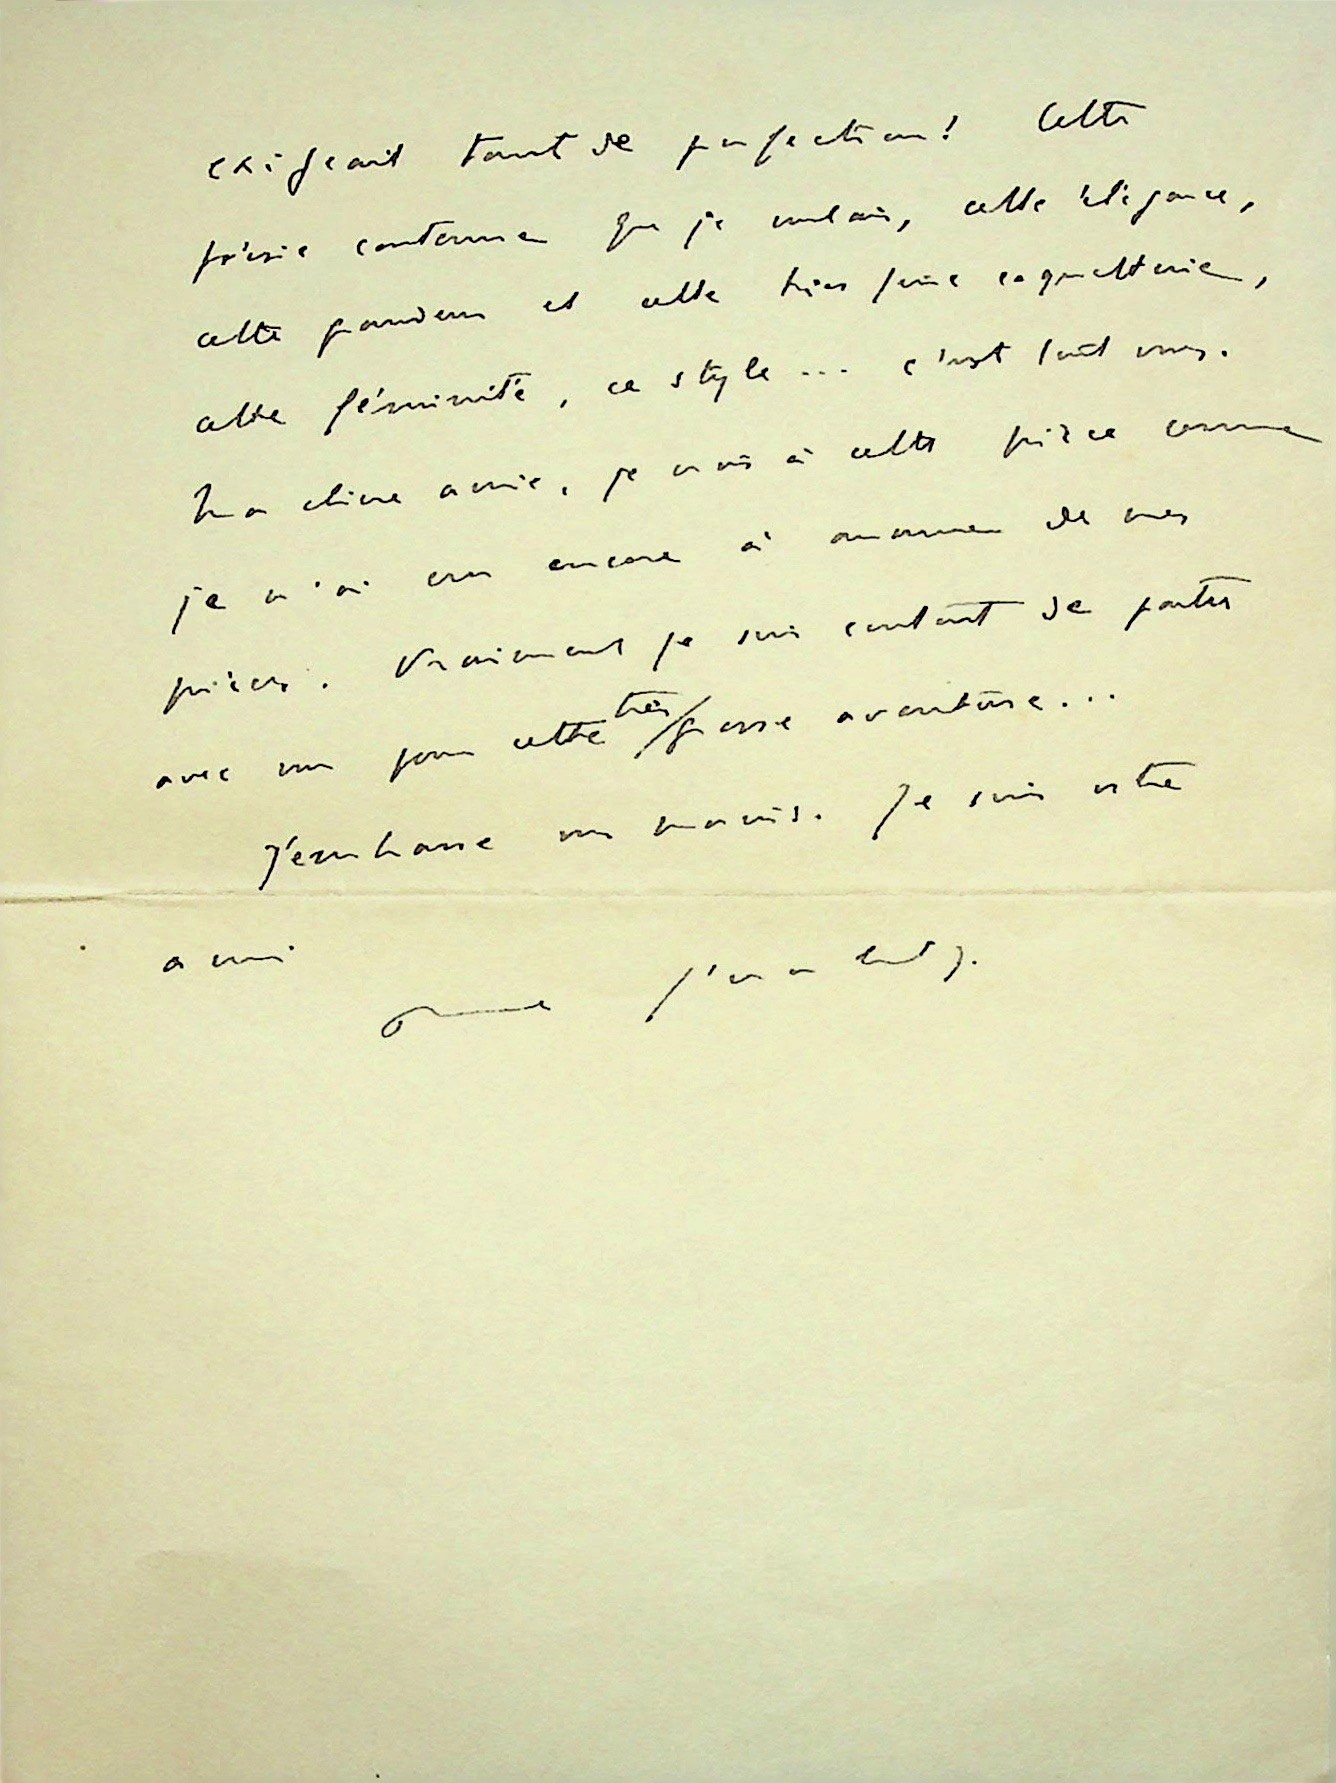 exigeait tant de perfection! Cette
poésie contenue que je voulais, cette élégance,
cette grandeur et cette très fine coquetterie,
cette féminité, ce style... c'est tout vous.
Ma chère amie, je crois à cette pièce comme
je n'ai cru encore à aucune de mes
pièces. Vraiment je suis content de partir
avec vous pour cette très grosse aventure...
J'embrasse vos mains. Je suis votre
ami